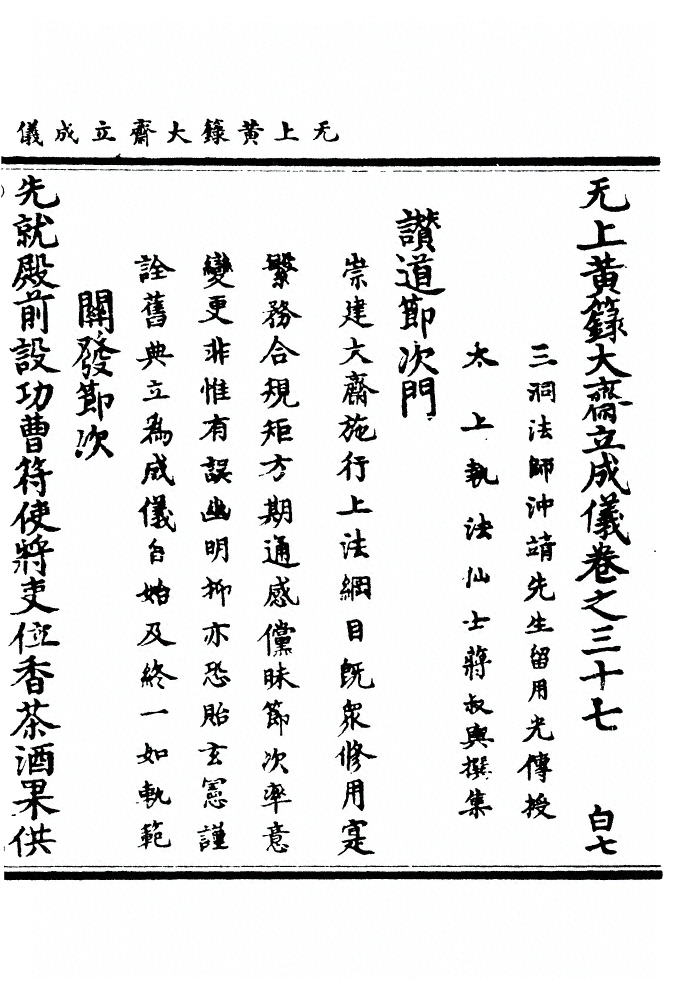 无上黃籙大齋立成儀
无上黃籙大齋立成儀卷之三十七 白七
三洞法師沖靖先生留用光傳授
太上執法仙士蔣叔輿撰集
讚道節次門
崇建大齋施行上法綱目旣衆修用寔
繁務合規矩方期通感儻昧節次率意
變更非惟有誤幽明抑亦恐貽玄憲謹
詮舊典立爲成儀自始及終一如軌範
關發節次
先就殿前設功曹符使將吏位香茶酒果供